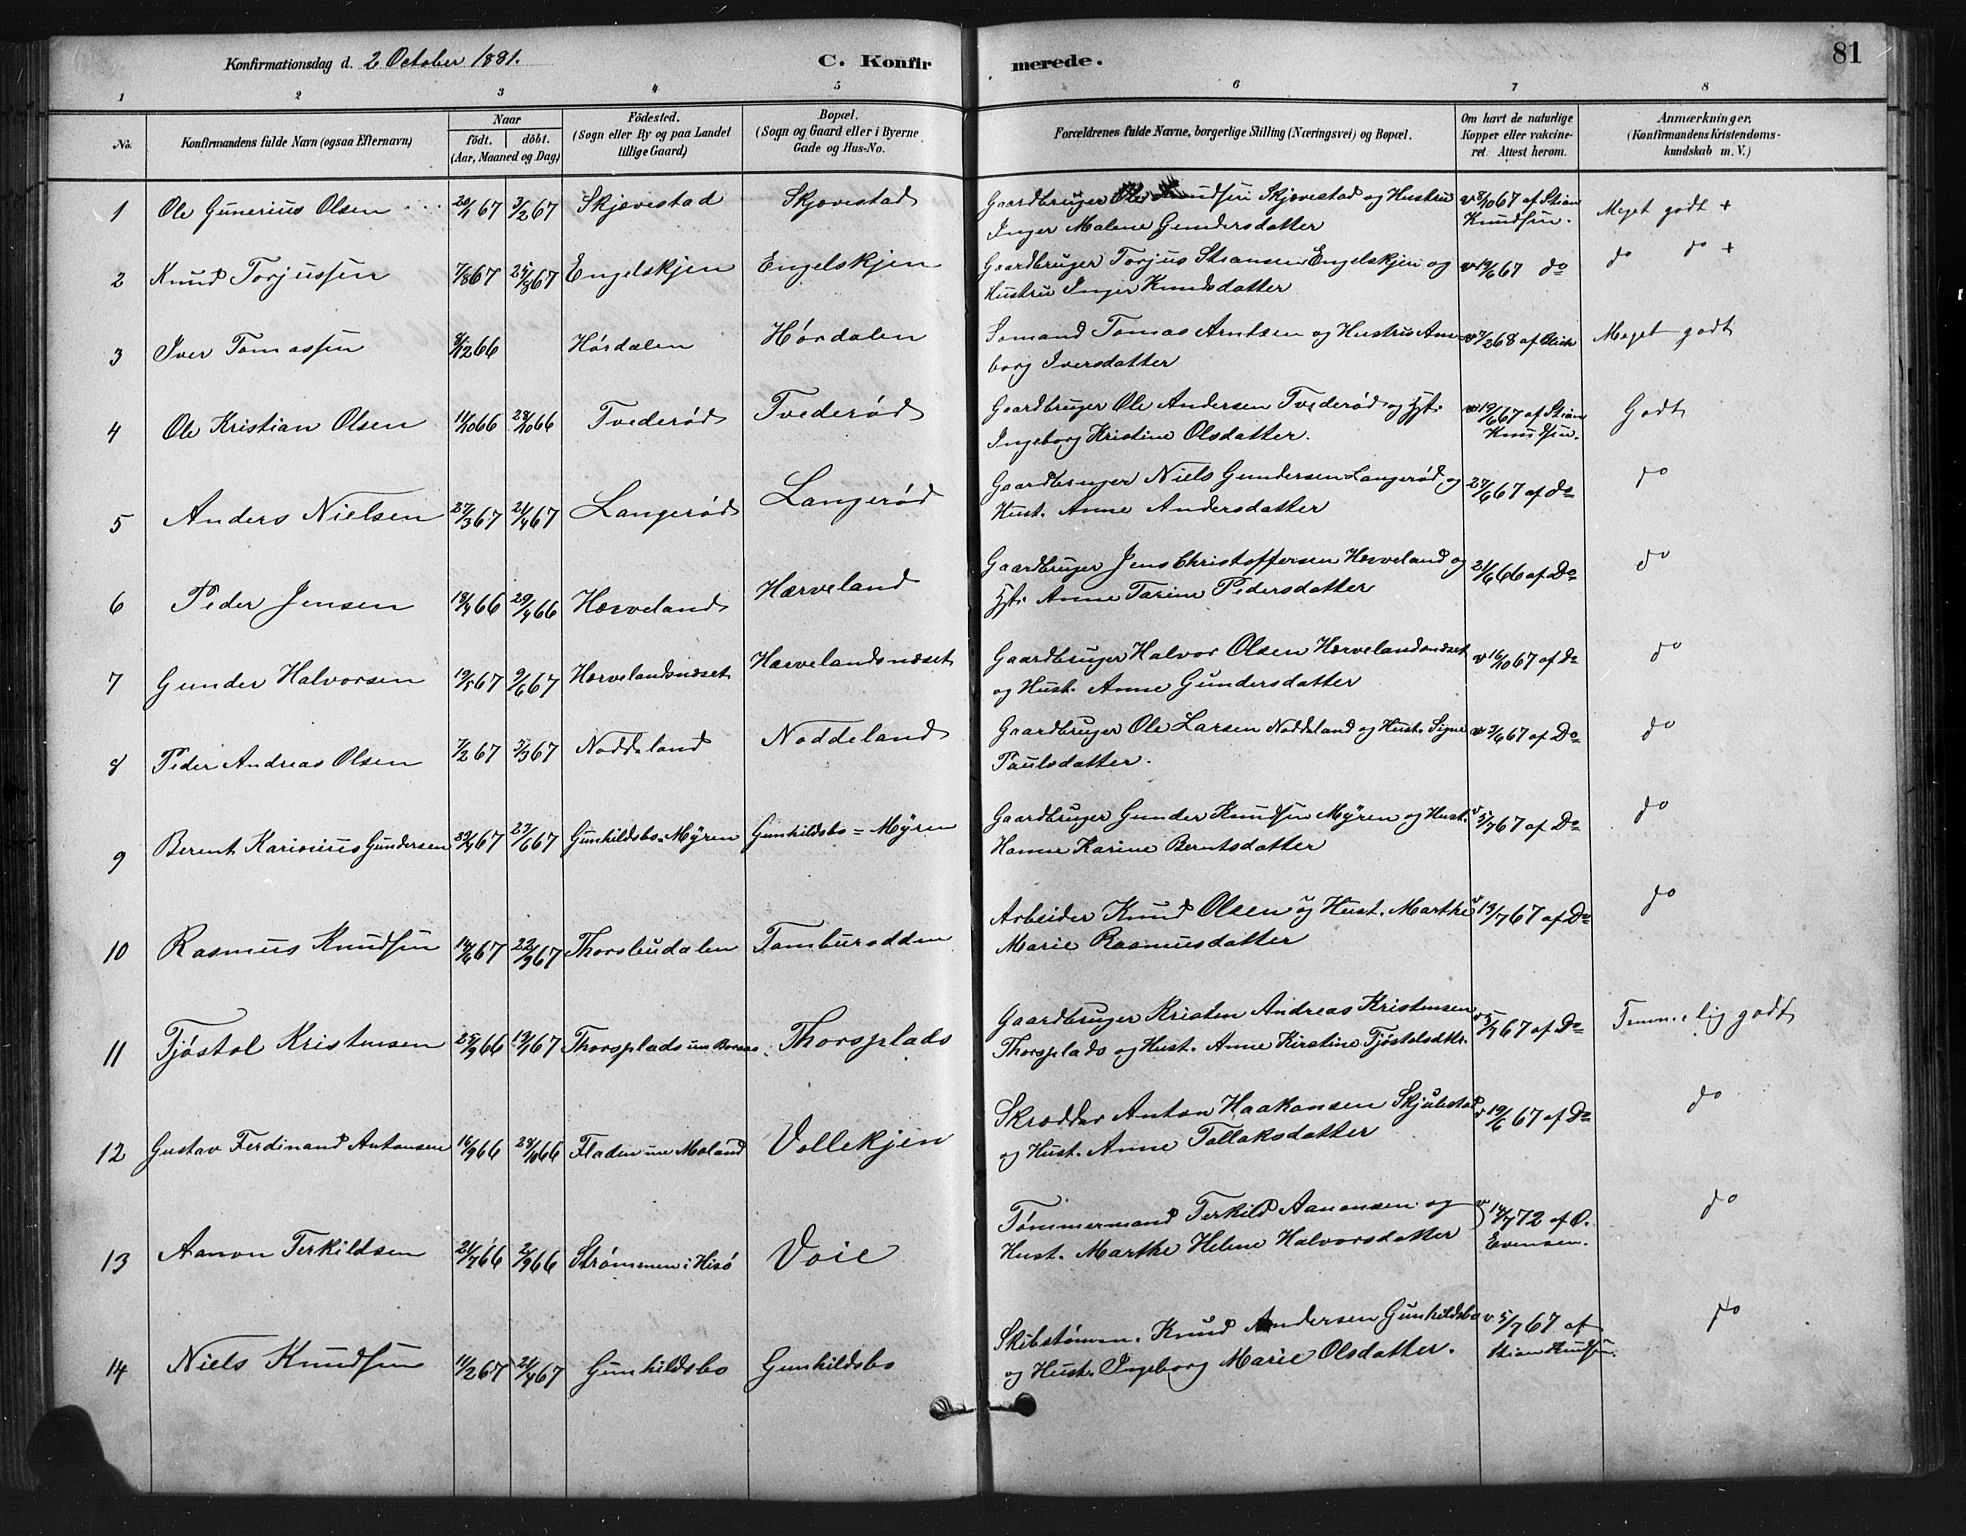 Konfirmationsdag d. 2 October 1881. C. Konfirmerede. 81
1 2 3 4 5 6 7 8
No. Konfirmandens fulde Navn (ogsaa Efternavn) Naar födt. döbt. (Aar, Maaned og Dag) Födested. (Sogn eller By og paa Landet tillige Gaard) Bopæl. (Sogn og Gaard eller i Byerne Gade og Hus-No. Forældrenes fulde Navne, borgerlige Stilling (Næringsvei) og Bopæl. Om havt de naturlige Kopper eller vakcineret. Attest herom. Anmærkninger, (Konfirmandens Kristendomskundskab m. V.)
1 Ole Gunerius Olsen 20/1 67 3/2 67 Skjævestad Skjævestad Gaardbruger Ole Knudsen Skjævestad og Hustru v 8/10 67 af Stian Meget godt +
Inger Malene Gundersdatter Knudsen.
2 Knud Torjussen 7/8 67 25/8 67 Engelskjen Engelskjen Gaardbruger Torjus Engelskjen og v 19/6 67 do do do +
Hustru Inger Knudsdatter
3 Iver Tomassen 8/12 66 Hórdalen Hórdalen Sømand Tomas Arntsen og Hustru Anne- v 7/2 68 af Meget godt
borg Iversdatter
4 Ole Kristian Olsen 11/10 66 28/10 66 Tvederød Tvederød Gaardbruger Ole Andersen Tvederød og Hst. v 19/6 67 af Stian Godt
Ingeborg Kristine Olsdatter. Knudsen.
5 Anders Nielsen 27/3 67 21/4 67 Langerød Langerød Gaardbruger Niels Gundersen Langerød, og 27/6 67 af do do
Hust. Anne Andersdatter
6 Peder Jensen 18/4 66 29/4 66 Hærveland Hærveland Gaardbruger Jens Christoffersen Hærveland og 21/6 66 af Do do
Hst. Anne Tarine Pedersdatter
7 Gunder Halvorsen 19/5 67 9/6 67 Hærvelandsnæset Hærvelandsnæset Gaardbruger Halvor Olsen Hærvelandsnæset v 16/10 67 af do do
og Hust. Anne Gundersdatter
8 Peder Andreas Olsen 7/2 67 3/3 67 Noddeland Noddeland Gaardbruger Ole Larsen Noddeland og Hust. Signe v 3/6 67 af Do do
Paulsdatter.
9 Berent Karinius Gundersen 67 23/6 67 Gunhildsbo-Myren Gunhildsbo=Myren Gaardbruger Gunder Knudsen Myren og Hust. v 5/7 67 af Do do
Hanne Karine Berntsdatter
10 Rasmus Knudsen 67 22/9 67 Thorsbudalen Tambursodden Arbeider Knud Olsen og Hust. Marthe v 13/7 67 af Do do
Marie Rasmusdatter
11 Tjöstol Kristensen 25/9 66 13/1 67 Thorsplads un Boraas Thorsplads Gaardbruger Kristen Andreas Kristensen v 5/7 67 af Do Temmelig godt
Thorsplads og Hust. Anne Kirstine Tjöstolsdtr.
12 Gustav Ferdinand Antonsen 16/9 66 28/10 66 Fladen un Moland Vollekjen Skrædder Anton Haakonsen Skjulestad v 19/6 67 af Do do
og Hust. Anne Tallaksdatter
13 Aanon Terkildsen 21/7 66 2/9 66 Strømmen i Hisö Voie Tømmermand Terkild Aanonsen og v 14/7 72 af O. do
Hust. Marthe Helene Halvorsdatter Evensen.
14 Niels Knudsen 11/2 67 21/4 67 Gunhildsbo Gunhildsbo Skibstømm. Knud Andersen Gunhildsbo v 5/7 67 af do
og Hust. Ingeborg Marie Olsdatter. Stian Knudsen.